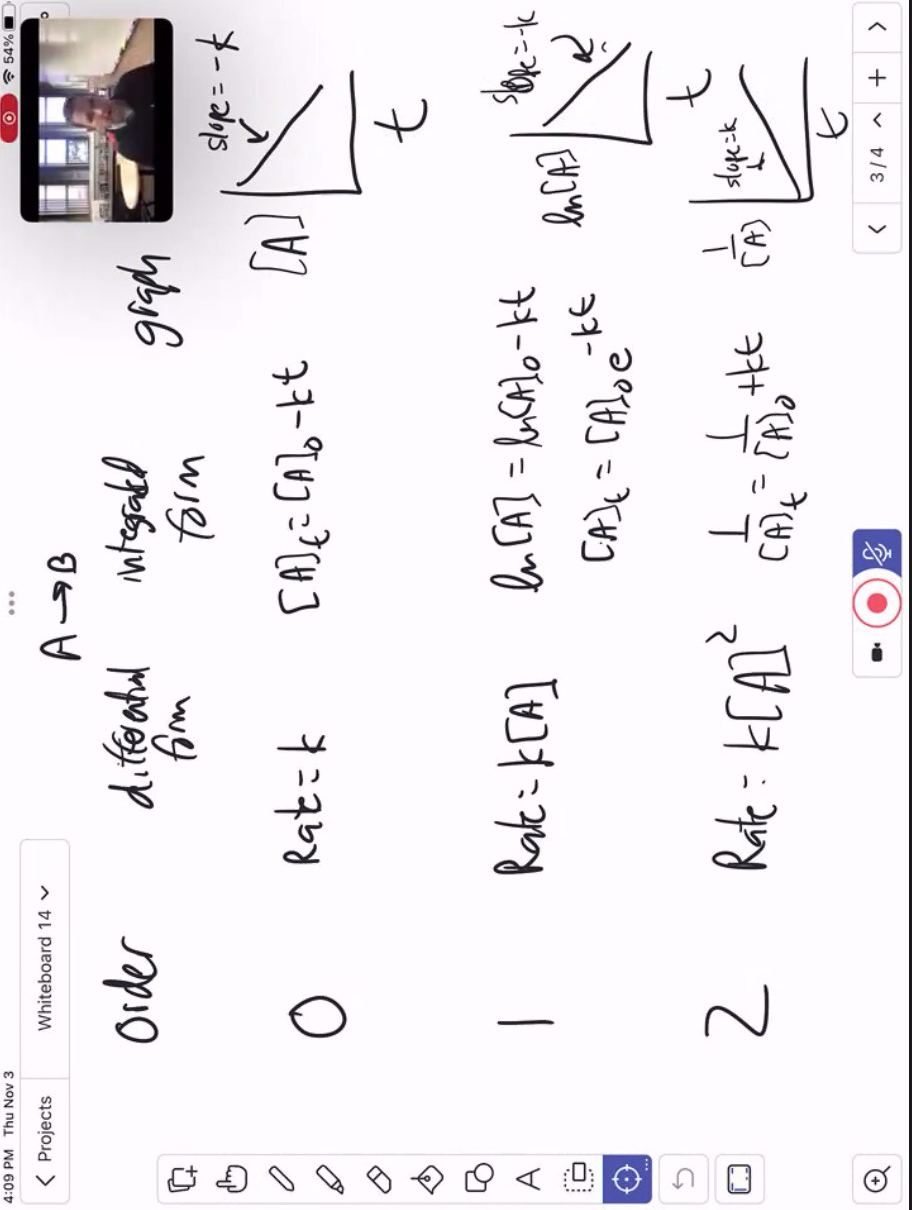 4:09 PM Thu Nov 3
54%
Projects
Whiteboard 14
A → B
order differential form integrated form graph
0 Rate = k [A]t = [A]0 - kt [A] slope = -k t
1 Rate = k[A] ln[A] = ln[A]0 - kt ln[A] slope = -k t
[A]t = [A]0 e^-kt
2 Rate = k[A]² 1/[A]t = 1/[A]0 + kt 1/[A] slope = k t
A
3/4